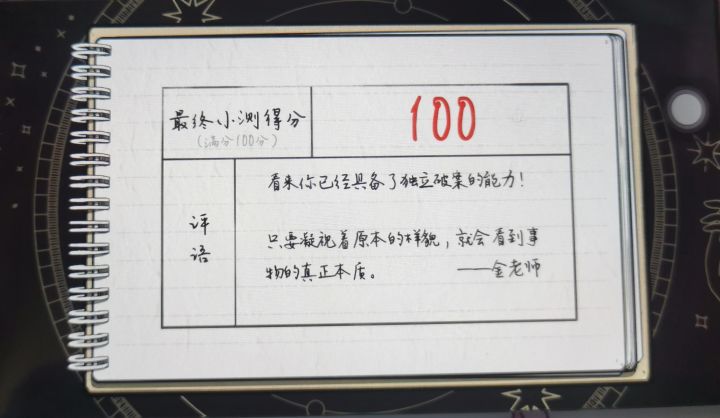 最终小测得分
100
(满分100分)
看来你已经具备了独立破案的能力！
评
语
只要凝视着原本的样貌，就会看到事
物的真正本质。 ——金老师